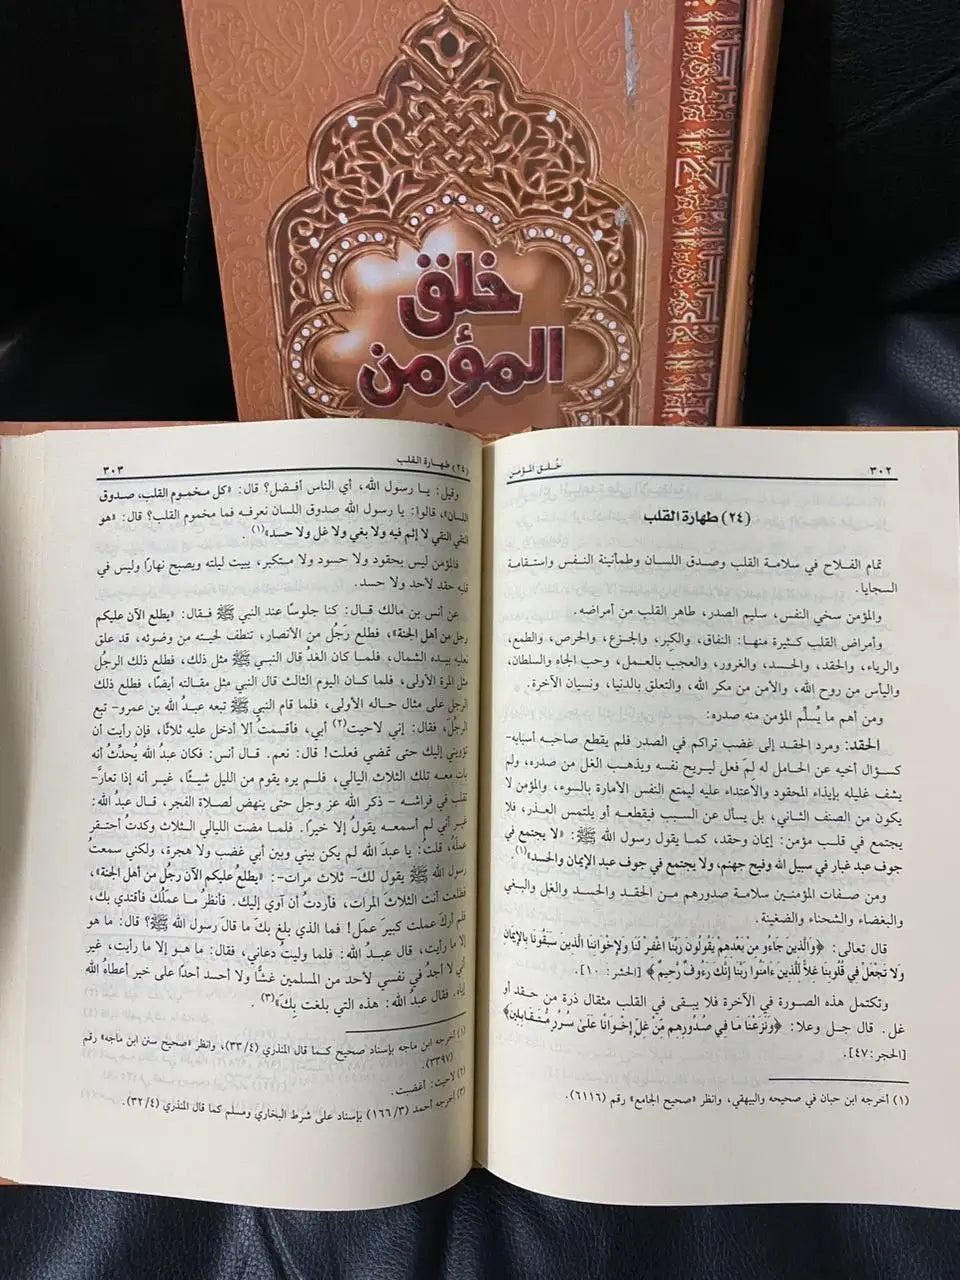 خلق
المؤمن
٣٠٢
خُلق المؤمن
(٢٤) طهارة القلب
تمام الفلاح في سلامة القلب وصدق اللسان وطمأنينة النفس واستقامة
السجايا.
والمؤمن سخي النفس، سليم الصدر، طاهر القلب من أمراضه.
وأمراض القلب كثيرة منها: النفاق، والكِبر، والجزع، والحرص، والطمع،
والرياء، والحقد، والحسد، والغرور، والعجب بالعمل، وحب الجاه والسلطان،
واليأس من روح الله، والأمن من مكر الله، والتعلق بالدنيا، ونسيان الآخرة.
ومن أهم ما يُسلِّم المؤمن منه صدره:
الحقد: ومرد الحقد إلى غضب تراكم في الصدر فلم يقطع صاحبه أسبابه-
كسؤال أخيه عن الحامل له لِمَ فعل ليريح نفسه ويذهب الغل من صدره، ولم
يشف غليله بإيذاء المحقود والاعتداء عليه ليمتع النفس الأمارة بالسوء، والمؤمن لا
يكون من الصنف الثاني، بل يسأل عن السبب فيقطعه أو يلتمس العذر، فلا
يجتمع في قلب مؤمن: إيمان وحقد، كما يقول رسول الله ﷺ: «لا يجتمع في
جوف عبد غبار في سبيل الله وفيح جهنم، ولا يجتمع في جوف عبد الإيمان والحسد»(١).
ومن صفات المؤمنين سلامة صدورهم من الحقد والحسد والغل والبغي
والبغضاء والشحناء والضغينة.
قال تعالى: ﴿وَالَّذِينَ جَاءُو مِنْ بَعْدِهِمْ يَقُولُونَ رَبَّنَا اغْفِرْ لَنَا وَلِإِخْوَانِنَا الَّذِينَ سَبَقُونَا بِالْإِيمَانِ
وَلَا تَجْعَلْ فِي قُلُوبِنَا غِلًّا لِّلَّذِينَ ءَامَنُوا رَبَّنَا إِنَّكَ رَءُوفٌ رَّحِيمٌ﴾ [الحشر: ١٠].
وتكتمل هذه الصورة في الآخرة فلا يبقى في القلب مثقال ذرة من حقد أو
غل. قال جل وعلا: ﴿وَنَزَعْنَا مَا فِي صُدُورِهِم مِّنْ غِلٍّ إِخْوَانًا عَلَىٰ سُرُرٍ مُّتَقَابِلِينَ﴾
[الحجر: ٤٧].
(١) أخرجه ابن حبان في صحيحه والبيهقي، وانظر «صحيح الجامع» رقم (٦١١٦).
(٢٤) طهارة القلب
٣٠٣
وقيل: يا رسول الله، أي الناس أفضل؟ قال: «كل مخموم القلب، صدوق
اللسان»، قالوا: يا رسول الله صدوق اللسان نعرفه فما مخموم القلب؟ قال: «هو
التقي النقي لا إثم فيه ولا بغي ولا غل ولا حسد»(١).
فالمؤمن ليس بحقود ولا حسود ولا متكبر، يبيت ليلته ويصبح نهارًا وليس في
قلبه حقد لأحد ولا حسد.
عن أنس بن مالك قال: كنا جلوسًا عند النبي ﷺ فقال: «يطلع الآن عليكم
رجل من أهل الجنة»، فطلع رَجُل من الأنصار، تنطف لحيته من وضوئه، قد علق
نعليه بيده الشمال، فلما كان الغدُ قال النبي ﷺ مثل ذلك، فطلع ذلك الرجلُ
مثل المرة الأولى، فلما كان اليوم الثالث قال النبي مثل مقالته أيضًا، فطلع ذلك
الرجل على مثال حاله الأولى، فلما قام النبي ﷺ تبعه عبدُ الله بن عمرو- تبع
الرجُلَ، فقال: إني لاحيت(٢) أبي، فأقسمتُ ألا أدخل عليه ثلاثًا، فإن رأيت أن
تؤويني إليك حتى تمضي فعلت! قال: نعم. قال أنس: فكان عبدُ الله يُحدِّثُ أنه
بات معه تلك الثلاث الليالي، فلم يره يقوم من الليل شيئًا، غير أنه إذا تعارَّ-
تقلب في فراشه - ذكر الله عز وجل حتى ينهض لصلاة الفجر، قال عبدُ الله:
غير أني لم أسمعه يقولُ إلا خيرًا. فلما مضت الليالي الثلاث وكدتُ أحتقر
عملَهُ، قلت: يا عبدَ الله لم يكن بيني وبين أبي غضب ولا هجرة، ولكني سمعتُ
رسول الله ﷺ يقول لكَ- ثلاث مرات-: «يطلعُ عليكم الآن رجُل من أهل الجنة»،
فطلعت أنت الثلاث المرات، فأردتُ أن آوي إليك. فأنظرُ ما عملُك فأقتدي بك،
فلم أركَ عملت كبيرَ عملٍ! فما الذي بلغ بكَ ما قالَ رسول الله ﷺ؟ قال: ما هو
إلا ما رأيت، قال عبدُ الله: فلما وليتُ دعاني، فقال: ما هو إلا ما رأيتَ، غير
أني لا أجدُ في نفسي لأحد من المسلمين غشًّا ولا أحسد أحدًا على خير أعطاهُ الله
إياه. فقال عبدُ الله: هذه التي بلغت بِكَ»(٣).
(١) أخرجه ابن ماجه بإسناد صحيح كما قال المنذري (٤/ ٣٣)، وانظر «صحيح سنن ابن ماجه» رقم
(٣٣٩٧).
(٢) لاحيت: أغضبت.
(٣) أخرجه أحمد (٣/ ١٦٦) بإسناد على شرط البخاري ومسلم كما قال المنذري (٤/ ٣٢).